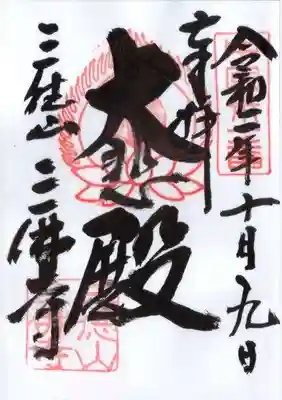 令和二年十月九日
奉拝
大悲殿
三徳山 三佛寺